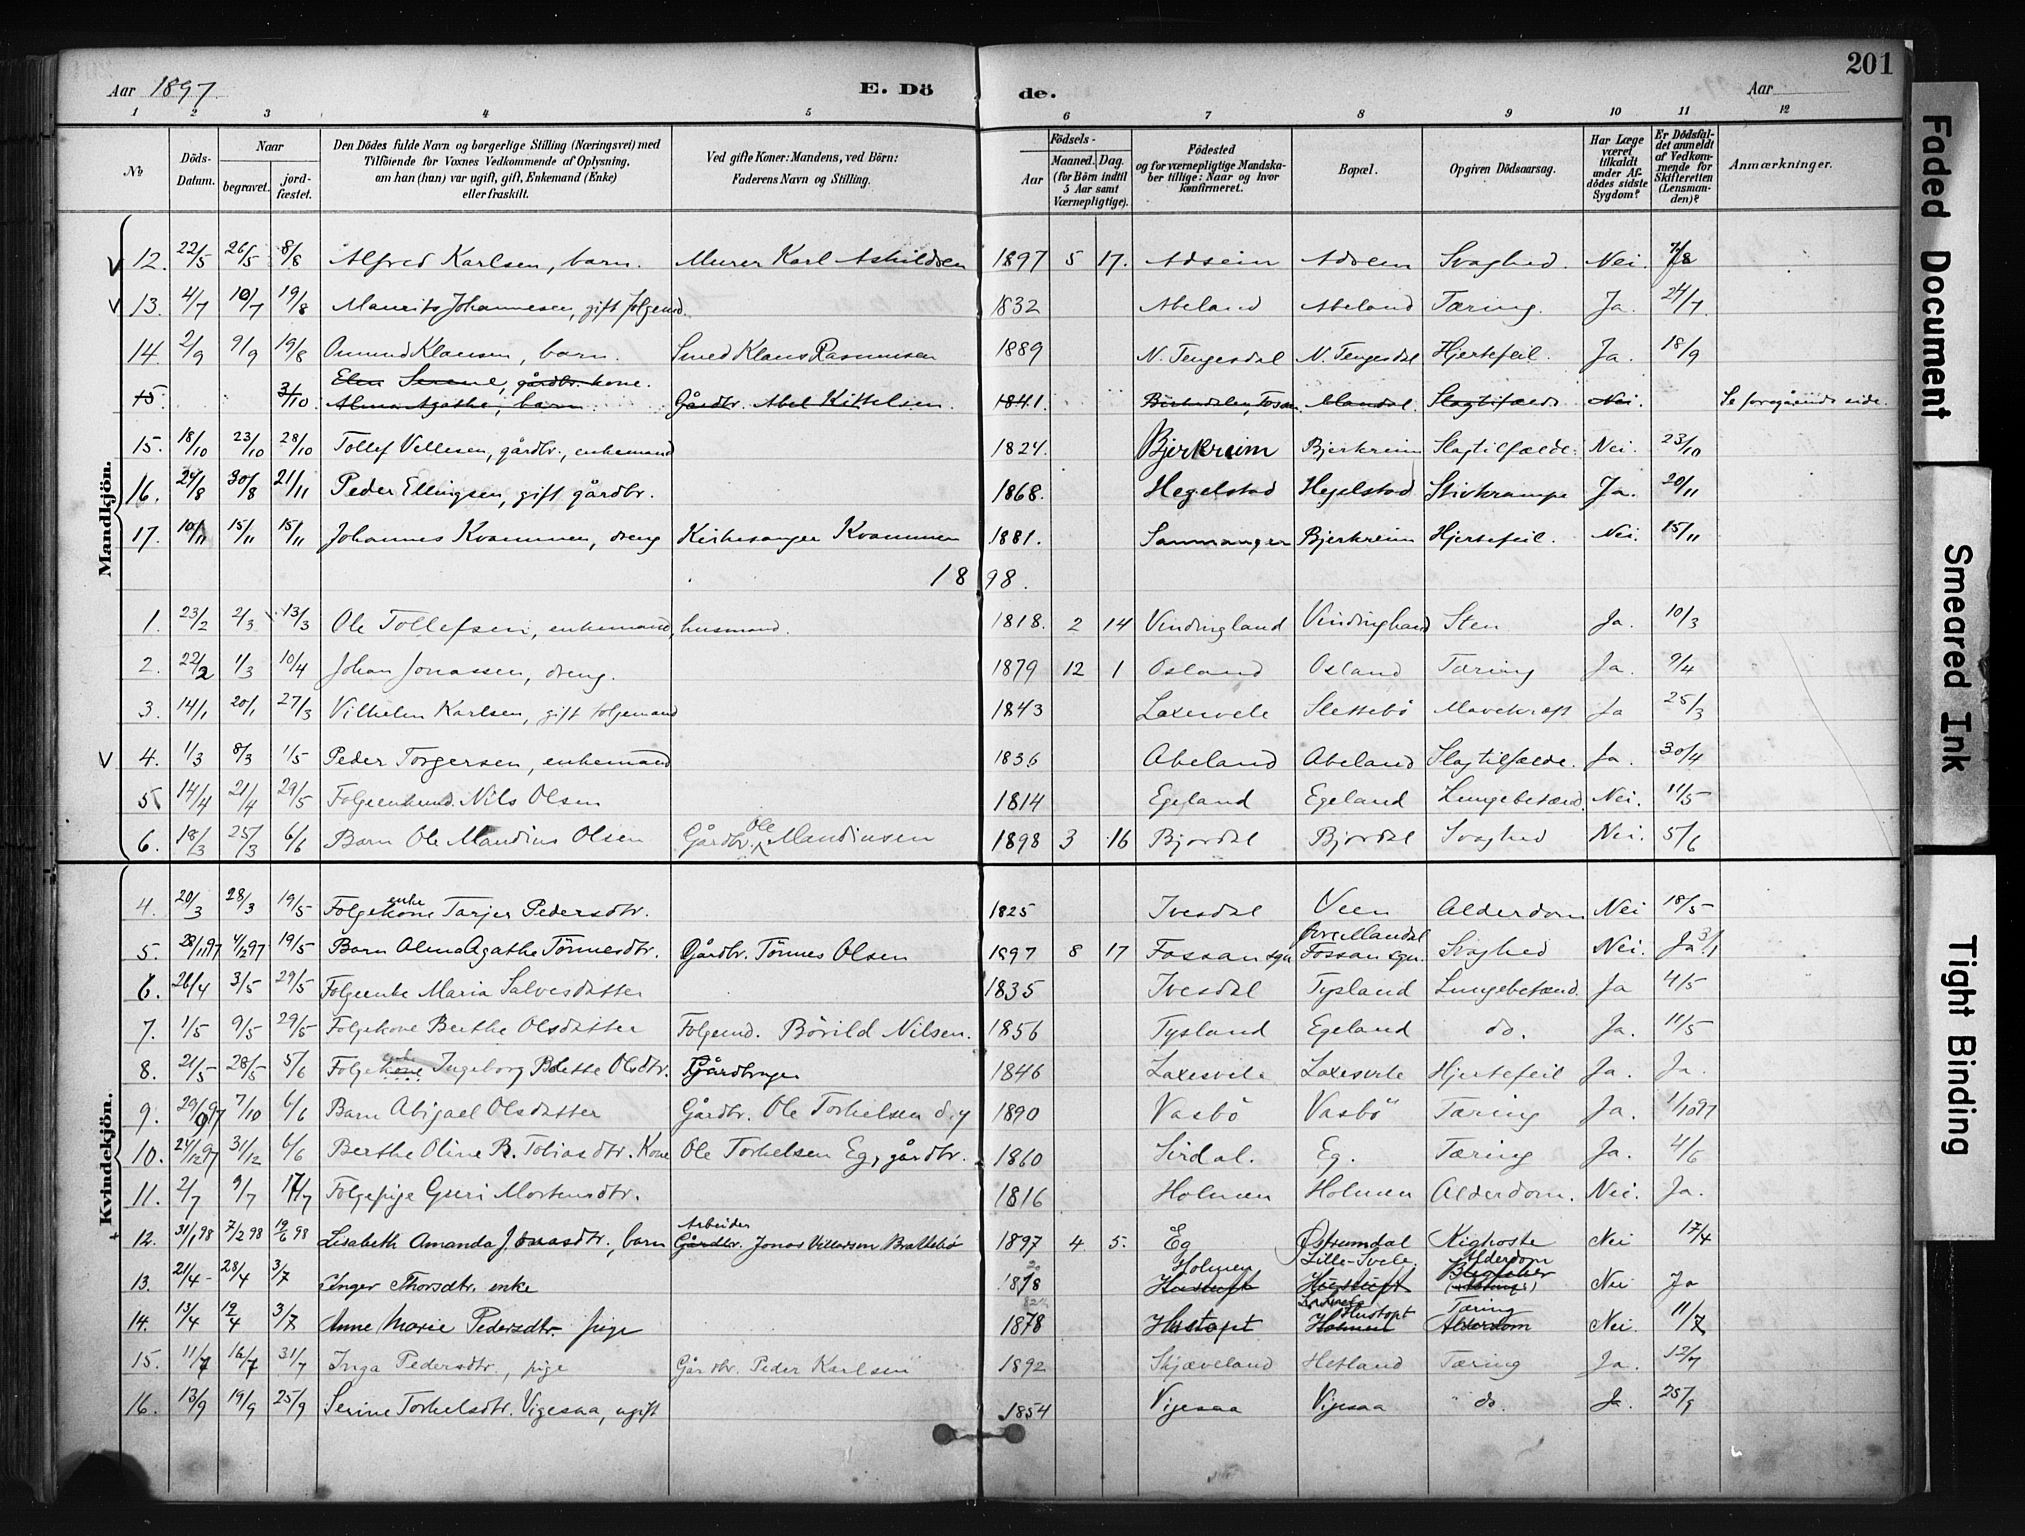 201
Aar 1897. E. Dö de. Aar
1 2 3 4 5 6 7 8 9 10 11 12
No
Döds-Datum.
Naar
begravet.
jord-fæstet.
Den Dödes fulde Navn og borgerlige Stilling (Næringsvei) med
Tilföiende for Voxnes Vedkommende af Oplysning,
om han (hun) var ugift, gift, Enkemand (Enke)
eller fraskilt.
Ved gifte Koner: Mandens, ved Börn:
Faderens Navn og Stilling.
Födsels-
Aar
Maaned. Dag.
(for Börn indtil
5 Aar samt
Værnepligtige).
Födested
og for værnepligtige Mandska-
ber tillige: Naar og hvor
konfirmeret.
Bopæl.
Opgiven Dödsaarsag.
Har Læge
været
tilkaldt
under Af-
dödes sidste
Sygdom?
Er Dödsfal-
det anmeldt
af Vedkom-
mende for
Skifteretten
(Lensman-
den)?
Anmærkninger.
Mandkjön.
12. 22/5 26/5 8/8 Alfred Karlsen, barn. Murer Karl Askildsen 1897 5 17. Adsein Adsein Svaghed. Nei. 7/8
13. 4/7 10/7 19/8 Maurits Johannesen, gift folgemd. 1832 Abeland Abeland Tæring. Ja. 24/7.
14. 2/9 9/9 19/8 Osmund Klausen, barn. Smed Klaus Rasmusen 1889 N. Tengesdal N. Tengesdal Hjertefeil. Ja. 18/9
Elen Serene, gårdbr. kone.
15 3/10. Alma Agathe, barn. Gårdbr. Abel Kittelsen. 1841. Mandal. Slagtilfælde Nei. Se foregående side.
15. 18/10 23/10 28/10 Tollef Vellesen, gårdbr., enkemand 1824. Bjerkreim Bjerkreim Slagtilfælde. Nei. 23/10
16. 24/8 30/8 21/11 Peder Ellingsen, gift gårdbr. 1868. Hegelstad Hegelstad Stivkrampe Ja. 20/11
17. 10/11 15/11 15/11 Johannes Kvammen, dreng Kirkesanger Kvammen 1881. Sammanger Bjerkreim Hjertefeil. Nei. 15/11
1898.
1. 23/2 2/3 13/3 Ole Tollefsen, enkemand, husmand. 1818. 2 14 Vindingland Vindingland Sten Ja. 10/3
2. 22/2 1/3 10/4 Johan Jonassen, dreng. 1879 12 1 Osland Osland Tæring Ja. 9/4
3. 14/1 20/1 27/3 Vilhelm Karlsen, gift folgemand 1843 Laxesvele Slettebö Mavekræft Ja 25/3
4. 1/3 8/3 1/5 Peder Torgersen, enkemand 1836 Abeland Abeland Slagtilfælde. Ja. 30/4
5 14/4 21/4 29/5 Folgeenkemd. Nils Olsen 1814 Egeland Egeland Lungebetænd. Nei. 11/5
6. 18/3 25/3 6/6 Barn Ole Mandius Olsen Gårdbr. Ole Mandiusen 1898 3 16 Bjordal Bjordal Svaghed Nei. 5/6
Kvindekjön.
4. 20/3 28/3 19/5 Folgekone enke Tarjer Pedersdtr. 1825 Ivesdal Veen Alderdom Nei 18/5
5. 28/11 97 4/12 97 19/5 Barn Alma Agathe Tönnesdtr. Gårdbr. Tönnes Olsen 1897 8 17 Fossan sgn Fossan sgn. Svaghed Nei. Ja 3/1
6. 26/4 3/5 29/5 Folgeenke Maria Salvesdatter 1835 Ivesdal Tysland Lungebetænd. Ja 4/5
7. 1/5 9/5 29/5 Folgekone Berthe Olsdatter Folgemd. Börild Nilsen. 1856 Tysland Egeland do. Ja. 11/5
8. 21/5 28/5 5/6 Folgekone enke Ingeborg Bolette Olsdtr. Gårdbruger 1846 Laxesvele Laxesvele Hjertefeil Ja. Ja.
9. 29/9 97 7/10 6/6 Barn Abigael Olsdatter Gårdbr. Ole Torkelsen d.y 1890 Vasbö Vasbö Tæring Ja. 1/10 97
10. 24/12 97 31/12 6/6 Berthe Oline B. Tobiasdtr. Kone Ole Torkelsen Eg, gårdbr. 1860 Sirdal. Eg. Tæring Ja. 4/6
11. 2/7 9/7 17/7 Folgepige Guri Mortensdtr. 1816 Holmen Holmen Alderdom. Nei. Ja.
12. 31/1 98 7/2 98 19/6 98 Lisabeth Amanda Jonasdtr., barn Arbeider Gårdbr. Jonas Villumsen Brattebö 1897 4 5. Eg Östrumdal Kighoste Nei 17/4
Holmen Lille-Svela. Alderdom
13. 21/4 28/4 3/7 Inger Thorsdtr. enke 1818 Hustuft Hustuft Nei Ja
Tæring
14. 13/4 19/4 3/7 Anne Marie Pedersdtr. pige 1878 Hustoft Hustoft Holmen Alderdom Nei. 11/7
15. 11/7 16/7 31/7 Inga Pedersdtr., pige Gårdbr. Peder Karlsen 1892 Skjæveland Hetland Tæring Ja. 12/7
16. 13/9 19/9 25/9 Serine Torkelsdtr. Vigesaa, ugift 1854 Vigesaa Vigesaa do. Ja. 25/9
Faded Document
Smeared Ink
Tight Binding